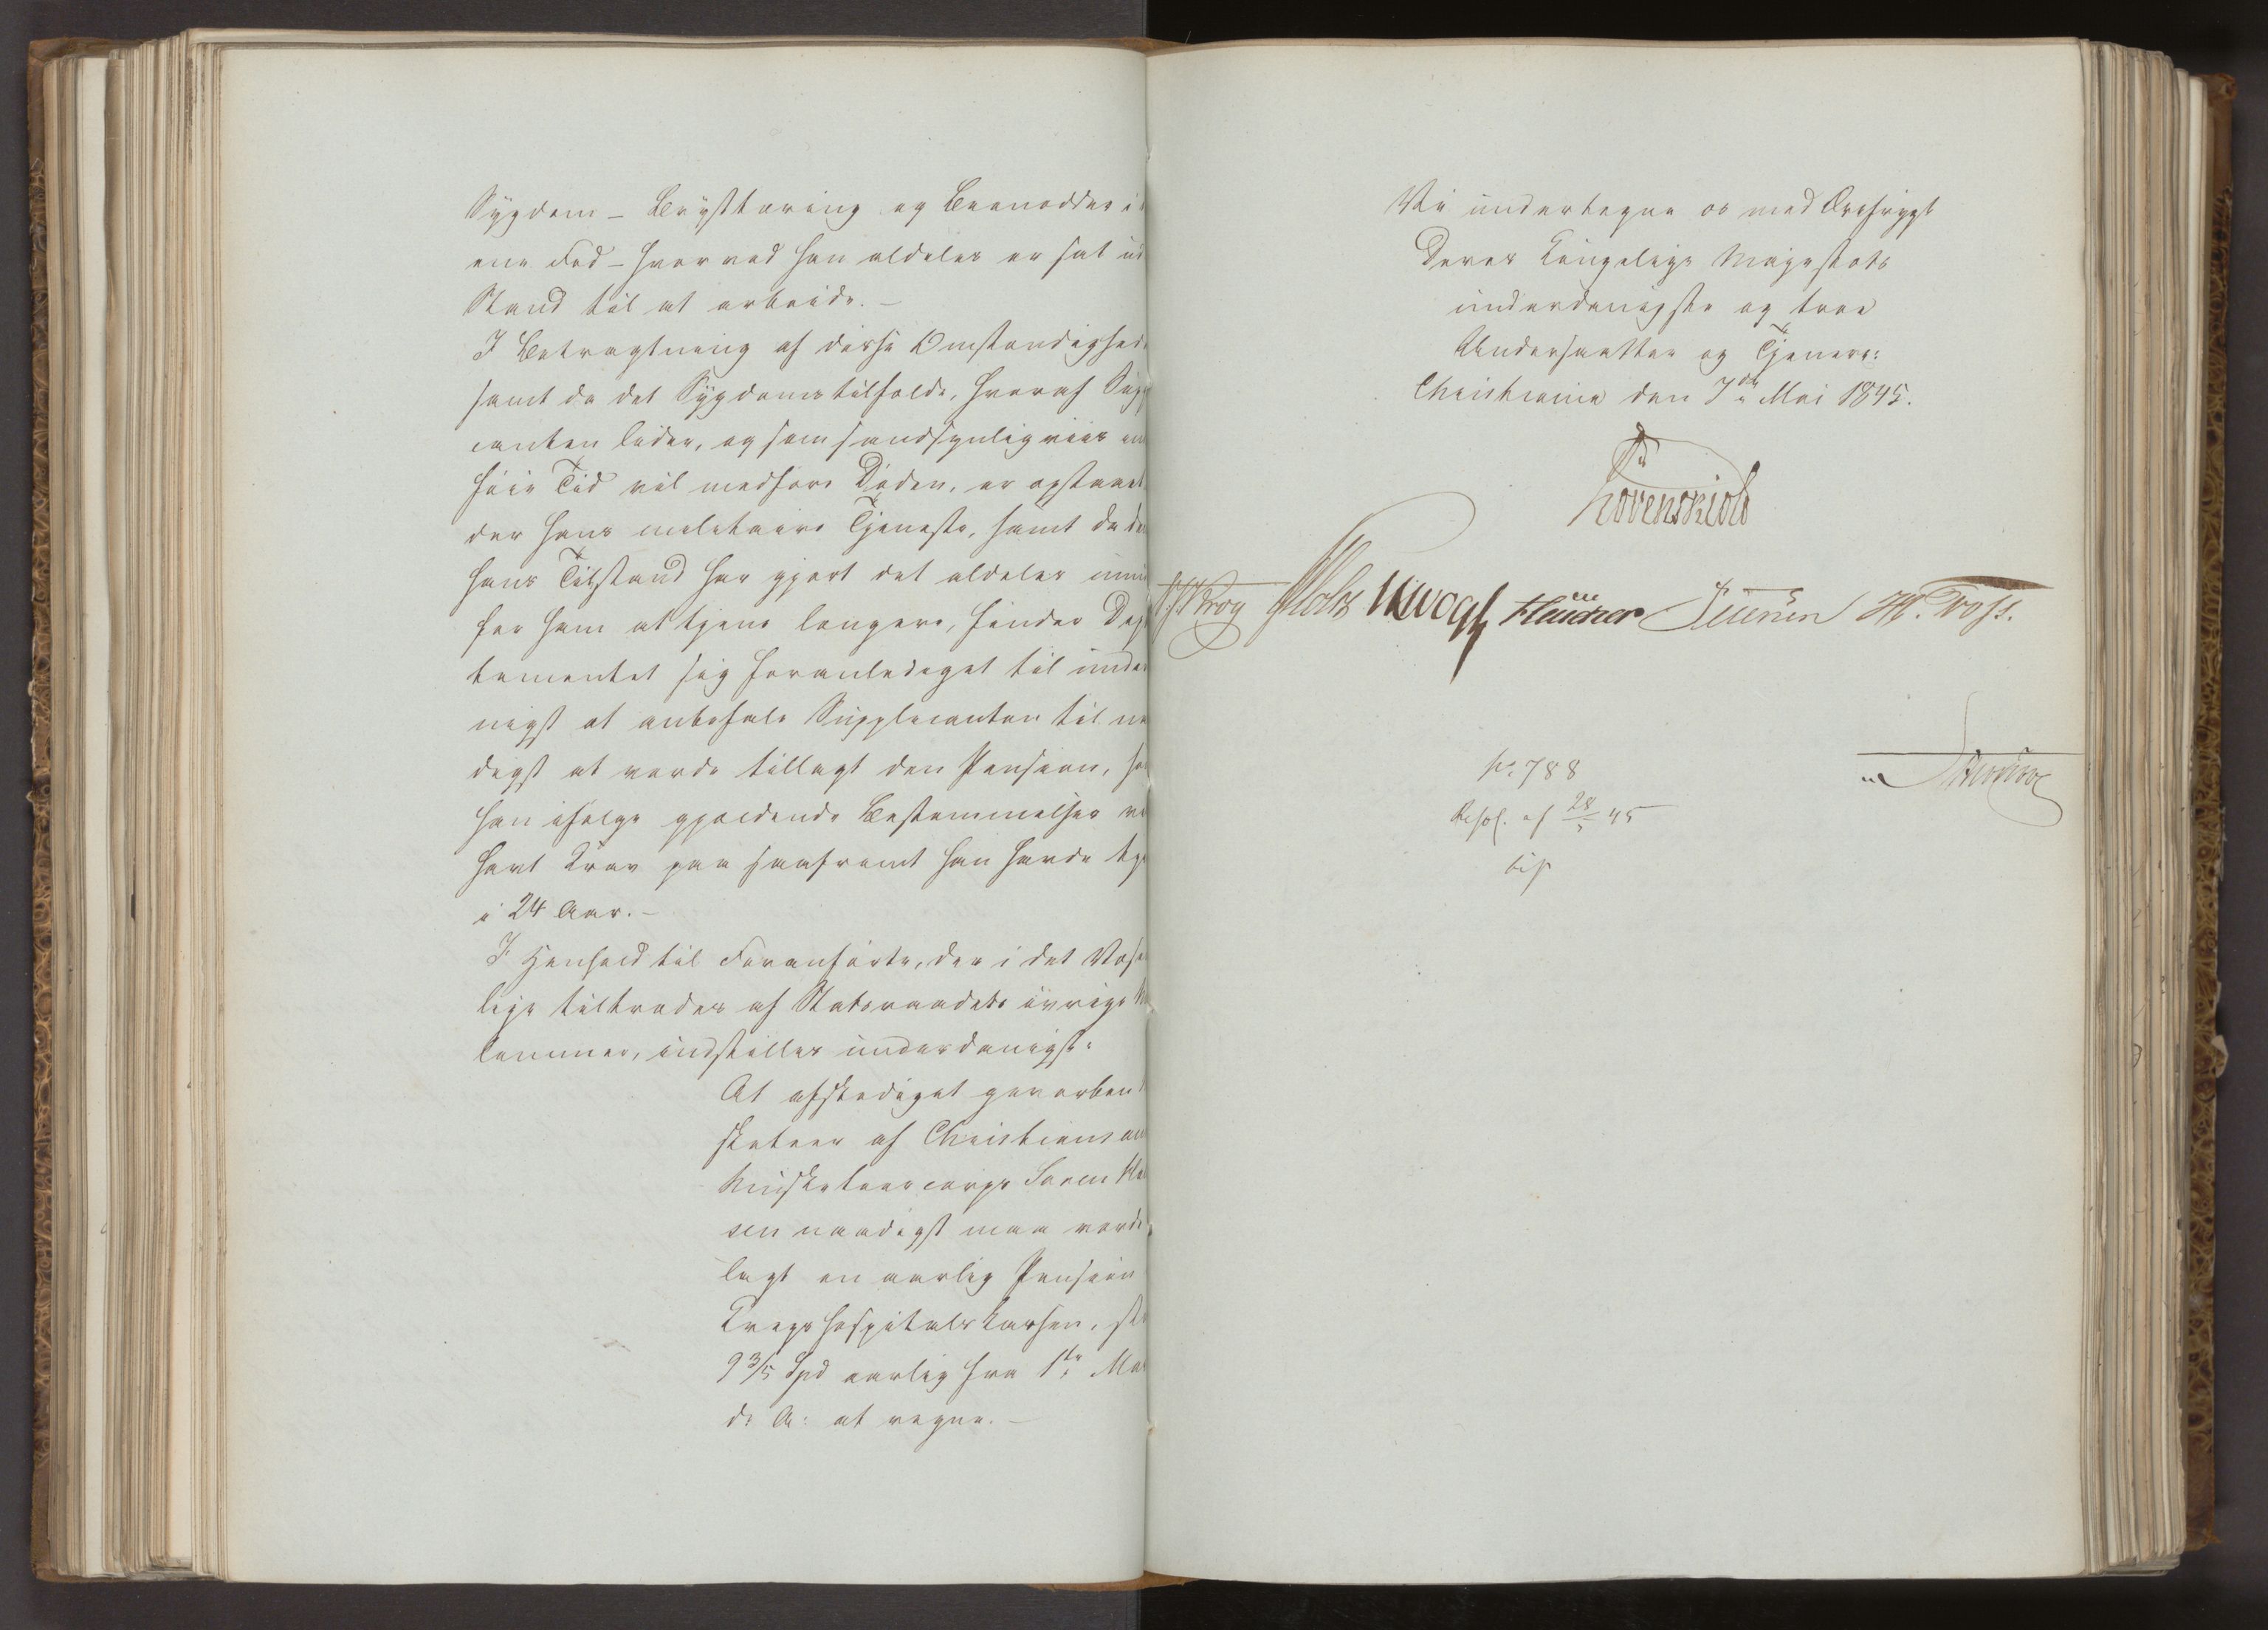 Sygdom – Brysttæring og Beenedder i
ene Fod – hvorved han aldeles er sat ud
Stand til at arbeide. –
I Betragtning af disse Omstændighed
samt da det Sygdomstilfælde, hvoraf Sup
canten lider, og som sandsynligviis in
føie Tid vil medføre Døden, er opstaaet
der hans militaire Tjeneste, samt da de
hans Tilstand har gjort det aldeles umu
for ham at tjene længere, finder Dep
tementet sig foranlediget til under
nigst at anbefale Supplicanten til na
digst at vorde tillagt den Pension, so
han ifølge gjældende Bestemmelser vi
havt Krav paa saafremt han havde tje
i 24 Aar. –
I Henhold til Foranførte, der i det Væse
lige tiltrædes af Statsraadets øvrige M
lemmer, indstilles underdanigst:
At afskediget gevorben
sketeer af Christiansan
Musketeercorps Søren
sen naadigst maa vorde
lagt en aarlig Pension
Krigshospitalskassen, st
9 3/5 Spd aarlig fra 1ste Ma
d: A: at regne. –
Vi undertegne os med Ærefrygt
Deres Kongelige Majestæts
underdanigste og troe
Undersaatter og Tjenere:
Christiania den 7de Mai 1845.
Løvenskiold
Krog Holst Vogt H. Foss.
No 788
Resol. af 28/5 45
bif